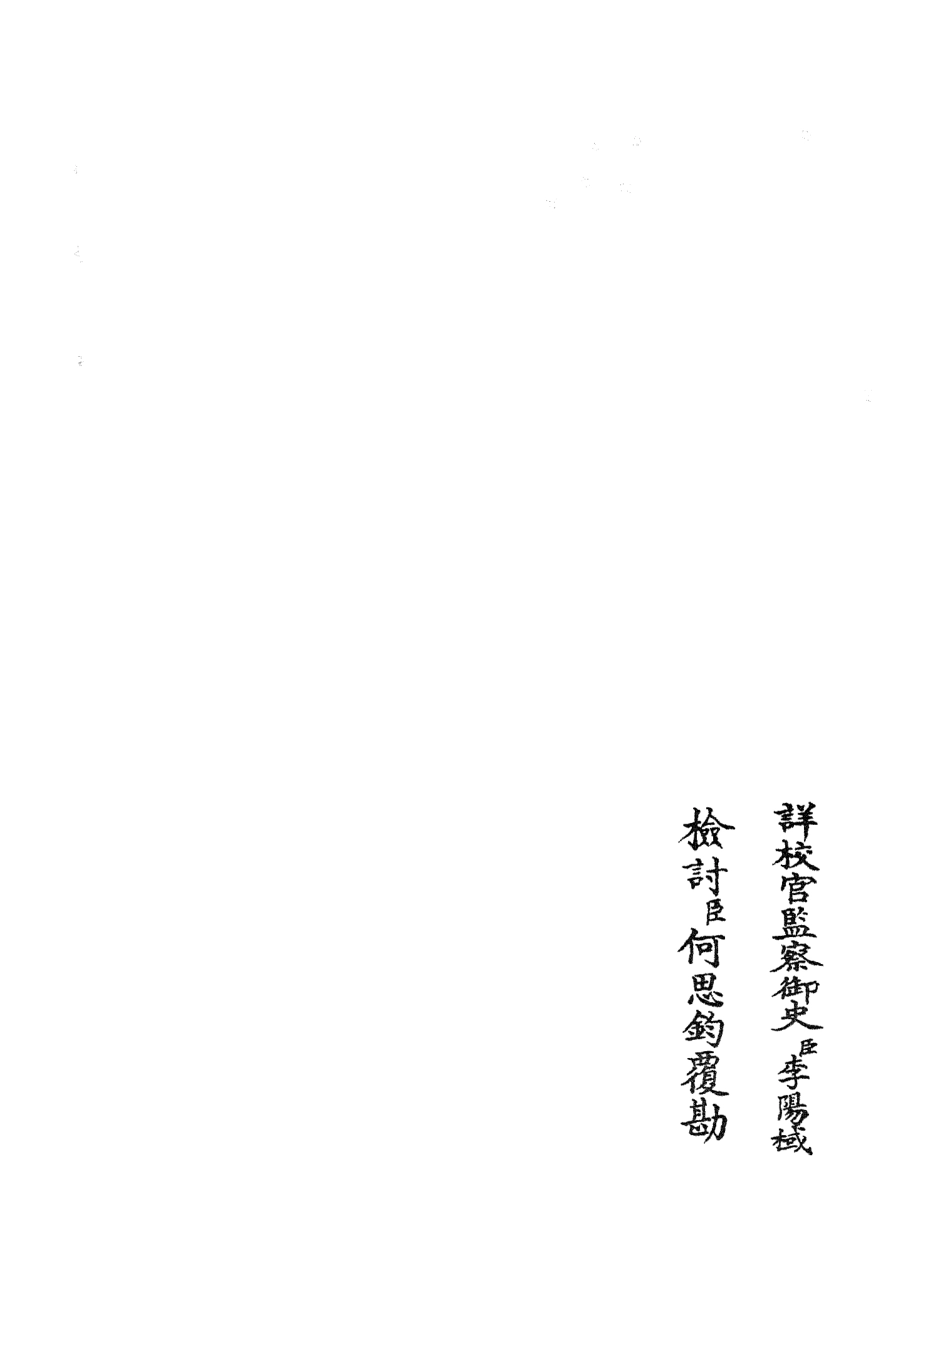 詳校官監察御史臣李陽棫
檢討臣何思鈞覆勘